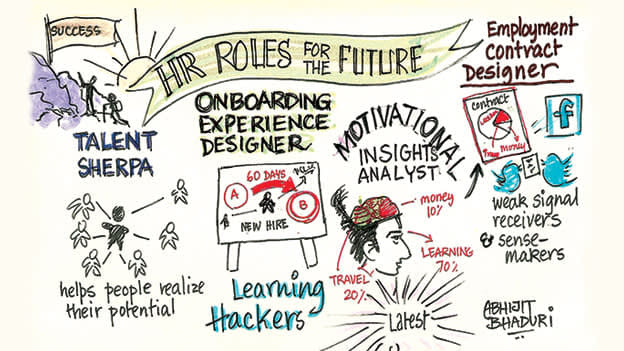 SUCCESS
HR ROLES FOR THE FUTURE
TALENT
SHERPA
helps people realize
their potential
ONBOARDING
EXPERIENCE
DESIGNER
60 DAYS
A
B
NEW HIRE
Learning
Hackers
MOTIVATIONAL
INSIGHTS
ANALYST
money
10%
LEARNING
70%
TRAVEL
20%
Latest
Employment
Contract
Designer
contract
Travel
money
f
weak signal
receivers
& sense-
makers
ABHIJIT
BHADURI